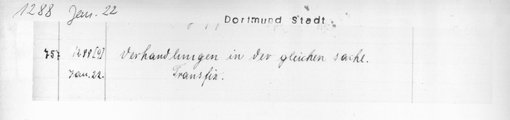 1288 Jan. 22
Dortmund Stadt.
757 1288 [9] Verhandlungen in der gleichen Sache.
Jan. 22. Transfix.